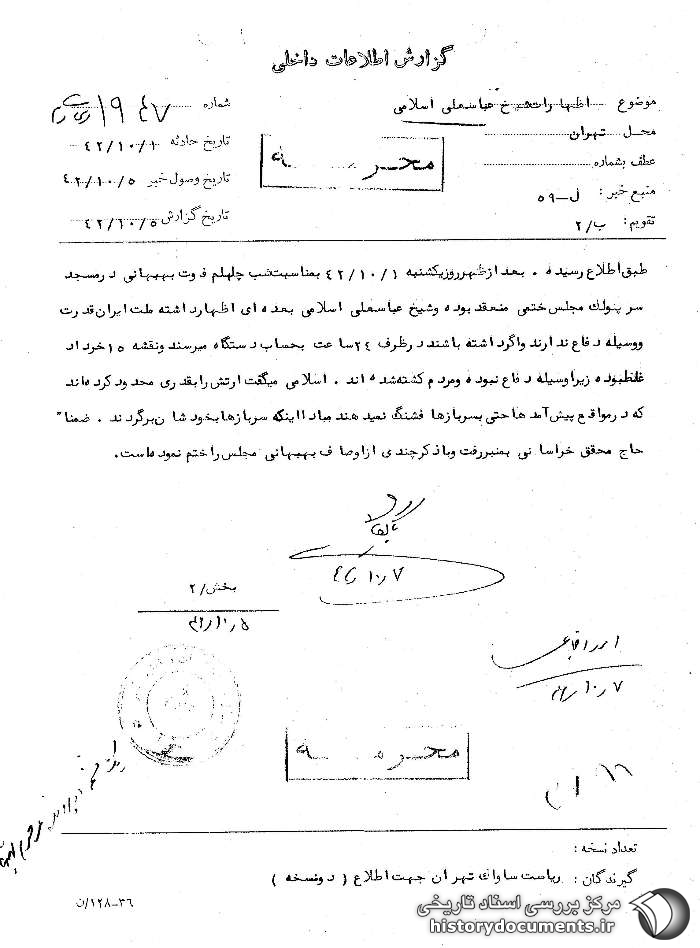 گزارش اطلاعات داخلی
موضوع اظهارات شیخ عباسعلی اسلامی
محل تهران
عطف بشماره
منبع خبر: ل-۵۹
تقویم: ب/۲
شماره ۱۹۴۷
تاریخ حادثه ۴۲/۱۰/۱
تاریخ وصول خبر ۴۲/۱۰/۵
تاریخ گزارش ۴۲/۱۰/۵
محرمانه
طبق اطلاع رسیده . بعد از ظهر روز یکشنبه ۴۲/۱۰/۱ بمناسبت شب چلهلم فوت بهبهانی در مسجد
سر پولک مجلس ختمی منعقد بوده و شیخ عباسعلی اسلامی بعده ای اظهار داشته ملت ایران قدرت
و وسیله دفاع ندارند و اگر داشته باشند در ظرف ۲۴ ساعت بحساب دستگاه میرسند و نقشه ۱۵ خرداد
غلط بوده زیرا وسیله دفاع نبوده و مردم کشته شده اند . اسلامی میگفت ارتش را بقدری محدود کرده اند
که در مواقع پیش آمدها حتی بسربازها فشنگ نمیدهند مبادا اینکه سربازها بخودشان برگردند . ضمنا"
حاج محقق خراسانی بمنبر رفت و با ذکر چندی از اوصاف بهبهانی مجلس را ختم نموده است.
۴۲/۱۰/۷
بخش/۲
۴۲/۱۰/۵
۴۲/۱۰/۷
محرمانه
تعداد نسخه :
گیرندگان : ریاست ساواک تهران جهت اطلاع ( دو نسخه )
۳۶-۱۲۸/ن
مرکز بررسی اسناد تاریخی
historydocuments.ir